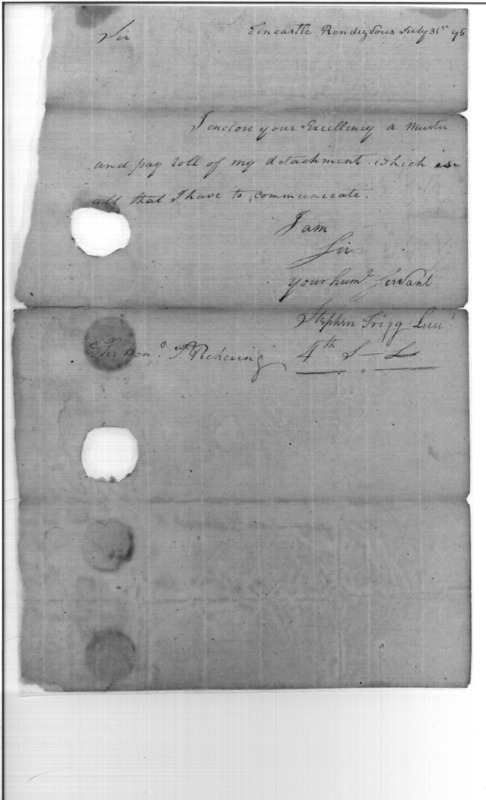 Sir Fincastle Rendezvous July 31st 95
I enclose your Excellency a Muster
and pay roll of my detachment which is
all that I have to communicate.
I am
Sir
your humd. Servant
Stephen Trigg Lieut.
The Honod. T. Pickering 4th S - L